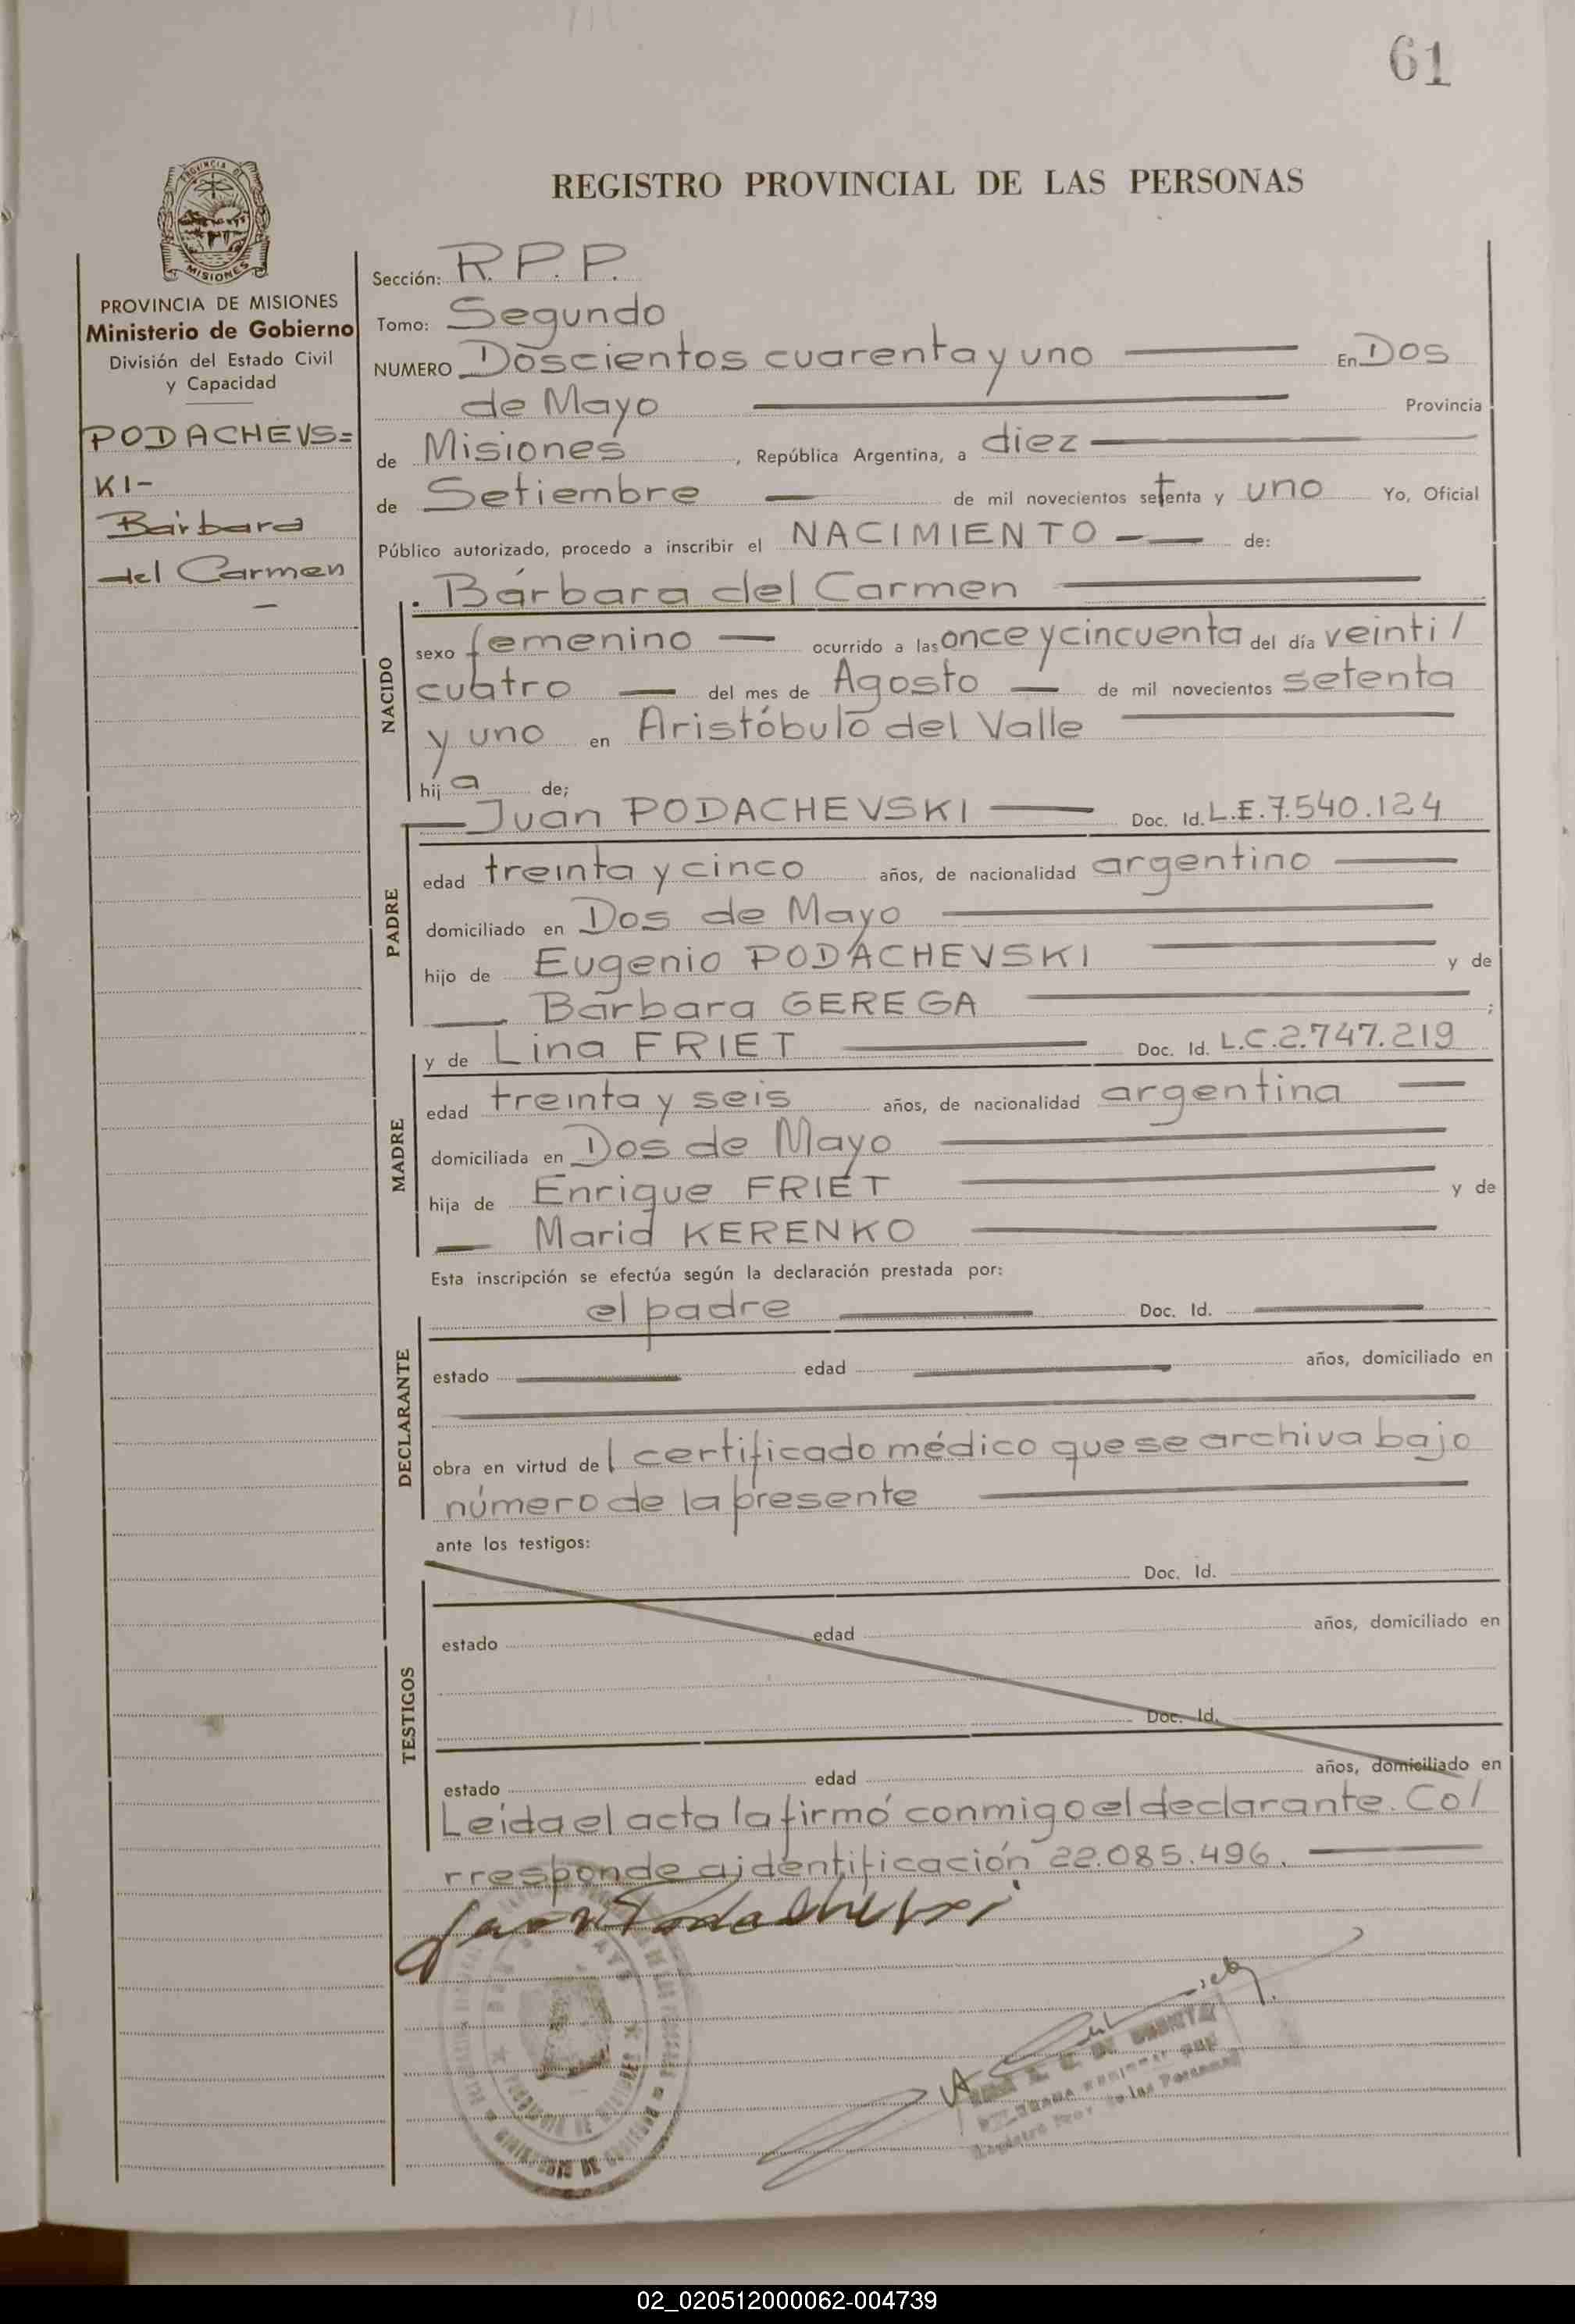 61
REGISTRO PROVINCIAL DE LAS PERSONAS
PROVINCIA DE
MISIONES
PROVINCIA DE MISIONES
Ministerio de Gobierno
División del Estado Civil
y Capacidad
PODACHEVS=
KI-
Bárbara
del Carmen
Sección: R.P.P.
Tomo: Segundo
NUMERO Doscientos cuarenta y uno En Dos
de Mayo Provincia
de Misiones, República Argentina, a diez
de Setiembre de mil novecientos setenta y uno Yo, Oficial
Público autorizado, procedo a inscribir el NACIMIENTO de:
. Bárbara del Carmen
NACIDO
sexo femenino ocurrido a las once y cincuenta del día veinti/
cuatro del mes de Agosto de mil novecientos setenta
y uno en Aristóbulo del Valle
hija de;
Juan PODACHEVSKI Doc. Id. L.E.7.540.124
PADRE
edad treinta y cinco años, de nacionalidad argentino
domiciliado en Dos de Mayo
hijo de Eugenio PODACHEVSKI y de
Bárbara GEREGA ;
y de Lina FRIET Doc. Id. L.C.2.747.219
MADRE
edad treinta y seis años, de nacionalidad argentina
domiciliada en Dos de Mayo
hija de Enrique FRIET y de
María KERENKO
Esta inscripción se efectúa según la declaración prestada por:
el padre Doc. Id.
DECLARANTE
estado edad años, domiciliado en
obra en virtud del certificado médico que se archiva bajo
número de la presente
ante los testigos:
Doc. Id.
TESTIGOS
estado edad años, domiciliado en
Doc. Id.
estado edad años, domiciliado en
Leída el acta la firmó conmigo el declarante. Co/
rresponde a identificación 22.085.496.
Juan Podachevski
Registro Prov. de las Personas
02_020512000062-004739